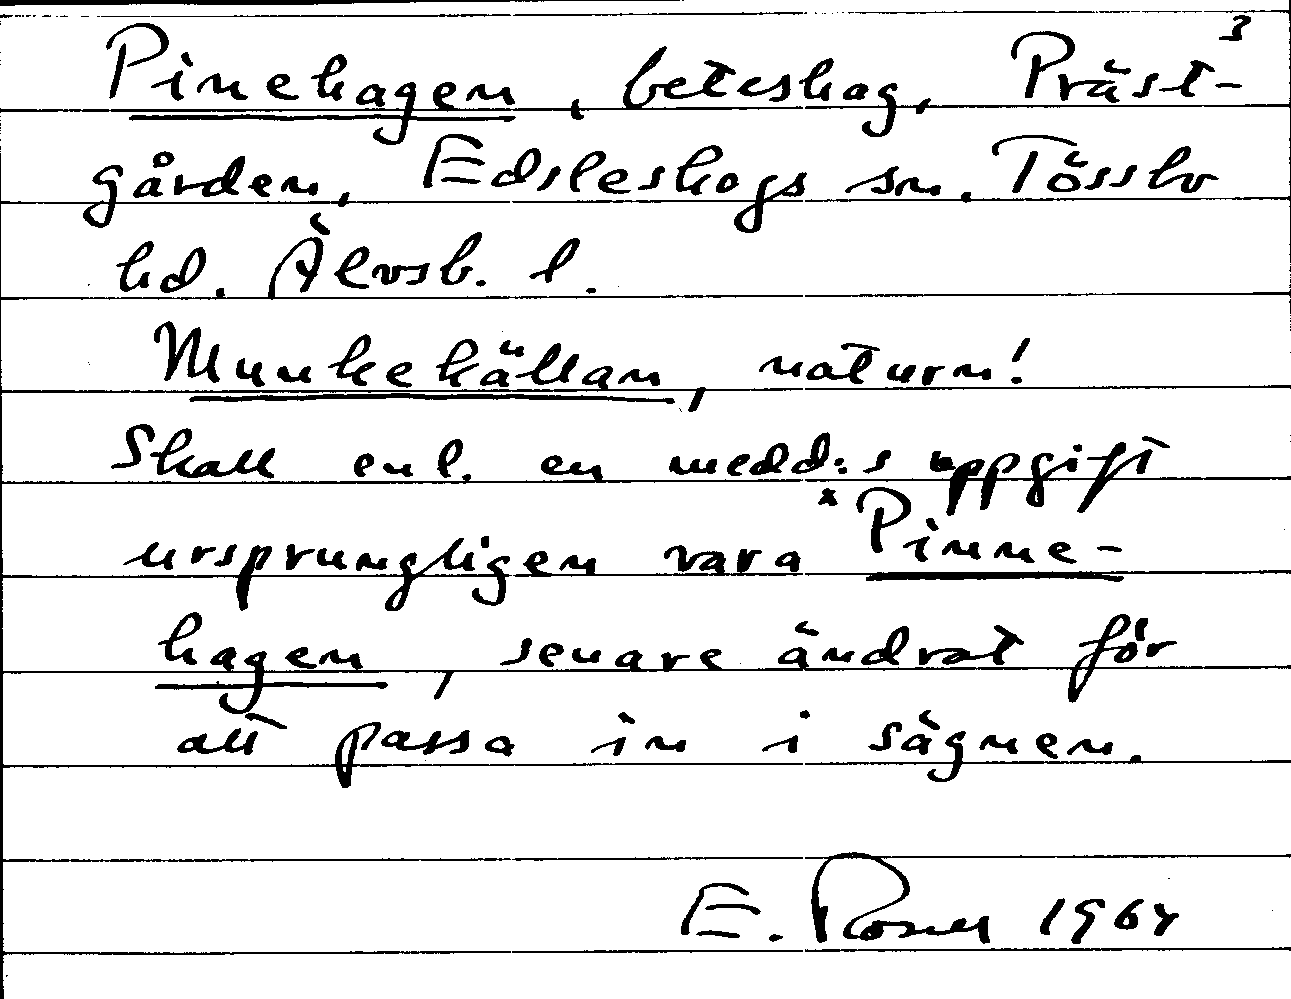 3
Pinehagen, beteshag, Präst-
gården, Edsleskogs sn. Tössbo
hd. Älvsb. l.
Munkekällan, naturn!
Skall enl. en medd:s uppgift
ursprungligen vara *Pinne-
hagen, senare ändrat för
att passa in i sägnen.
E. Rosell 1964